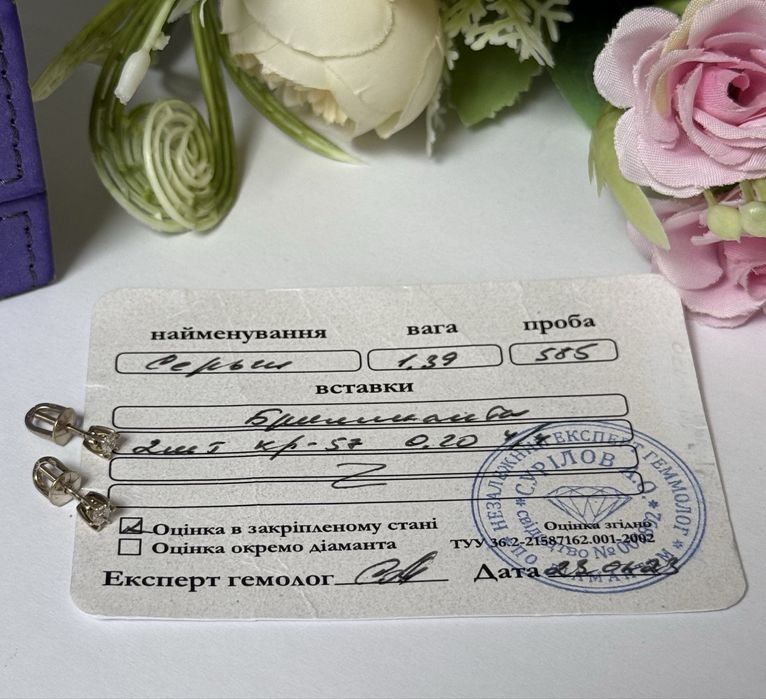 найменування вага проба
Серьги 1.39 585
вставки
Бриллианты
2шт кр-57 0.20
Оцінка в закріпленому стані
Оцінка окремо діаманта
Оцінка згідно
ТУУ 36.2-21587162.001-2002
Експерт гемолог
Дата 23
НЕЗАЛЕЖНИЙ ЕКСПЕРТ ГЕММОЛОГ